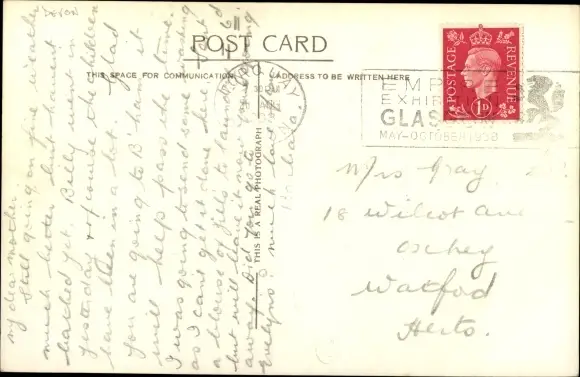 POST CARD
THIS SPACE FOR COMMUNICATION
ADDRESS TO BE WRITTEN HERE
THIS IS A REAL PHOTOGRAPH
POSTAGE REVENUE
1D
EMP
EXHI
GLAS
MAY-OCTOBER 1938
My dear Mother
Still going on fine weather
much better but haven't
bathed yet. Billy
yesterday & of course the children
have been in a lot. glad
you are going to B'ham it
will help pass the time.
I was going to send some washing
as I can get it done here. got
a blouse of Jills to laund
but will leave it now your going
away. Did you go to
Evelyns? much love
Barbara.
Mrs Gray
18 Wilcot Ave
Oxhey
Watford
Herts.